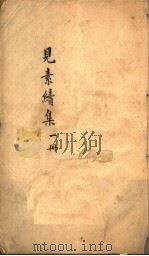 見素續集 一冊
www.mtoou.info